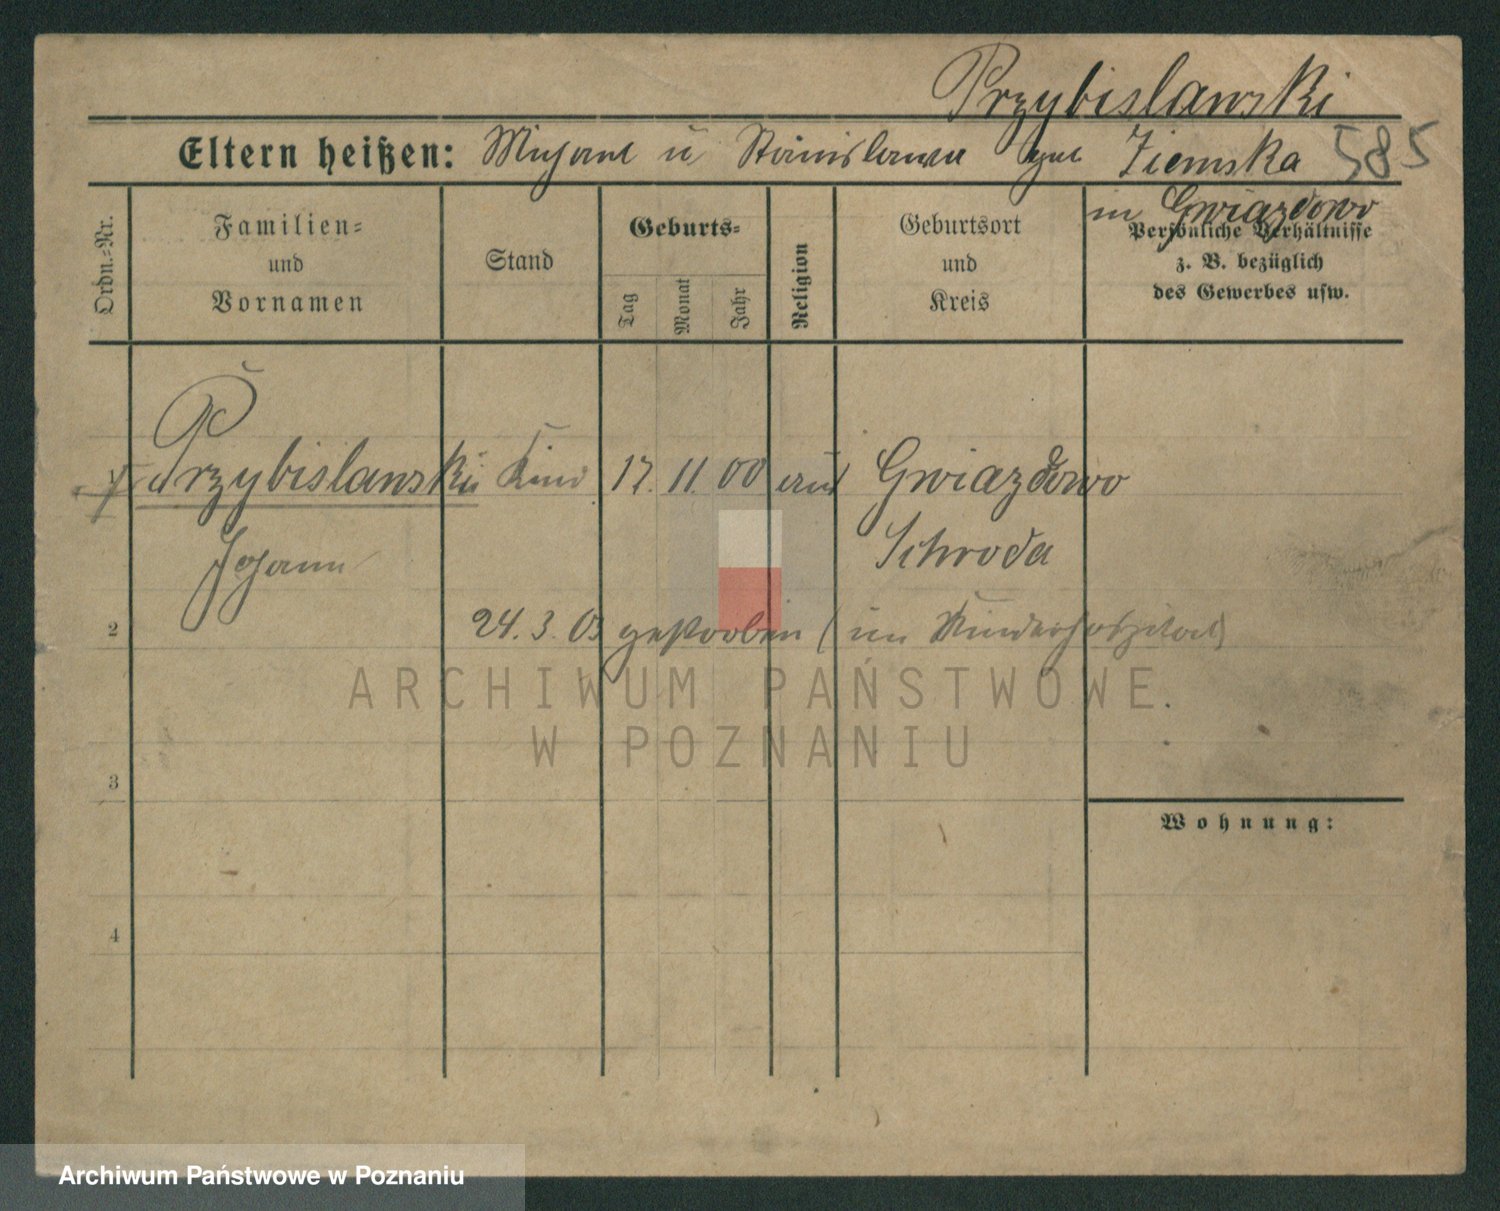 Przybislawski
Eltern heißen: Michael u Stanislawa geb Ziemska 585
in Gwiazdowo
Ordn.-Nr.
Familien-
und
Vornamen
Stand
Geburts-
Tag
Monat
Jahr
Religion
Geburtsort
und
Kreis
Persönliche Verhältnisse
z. B. bezüglich
des Gewerbes usw.
Przybislawski Kind 17. 11. 00 Gwiazdowo
Johann Schroda
2 24. 3. 03 gestorben (im Kinderhospital)
3
Wohnung:
4
ARCHIWUM PAŃSTWOWE
W POZNANIU
Archiwum Państwowe w Poznaniu